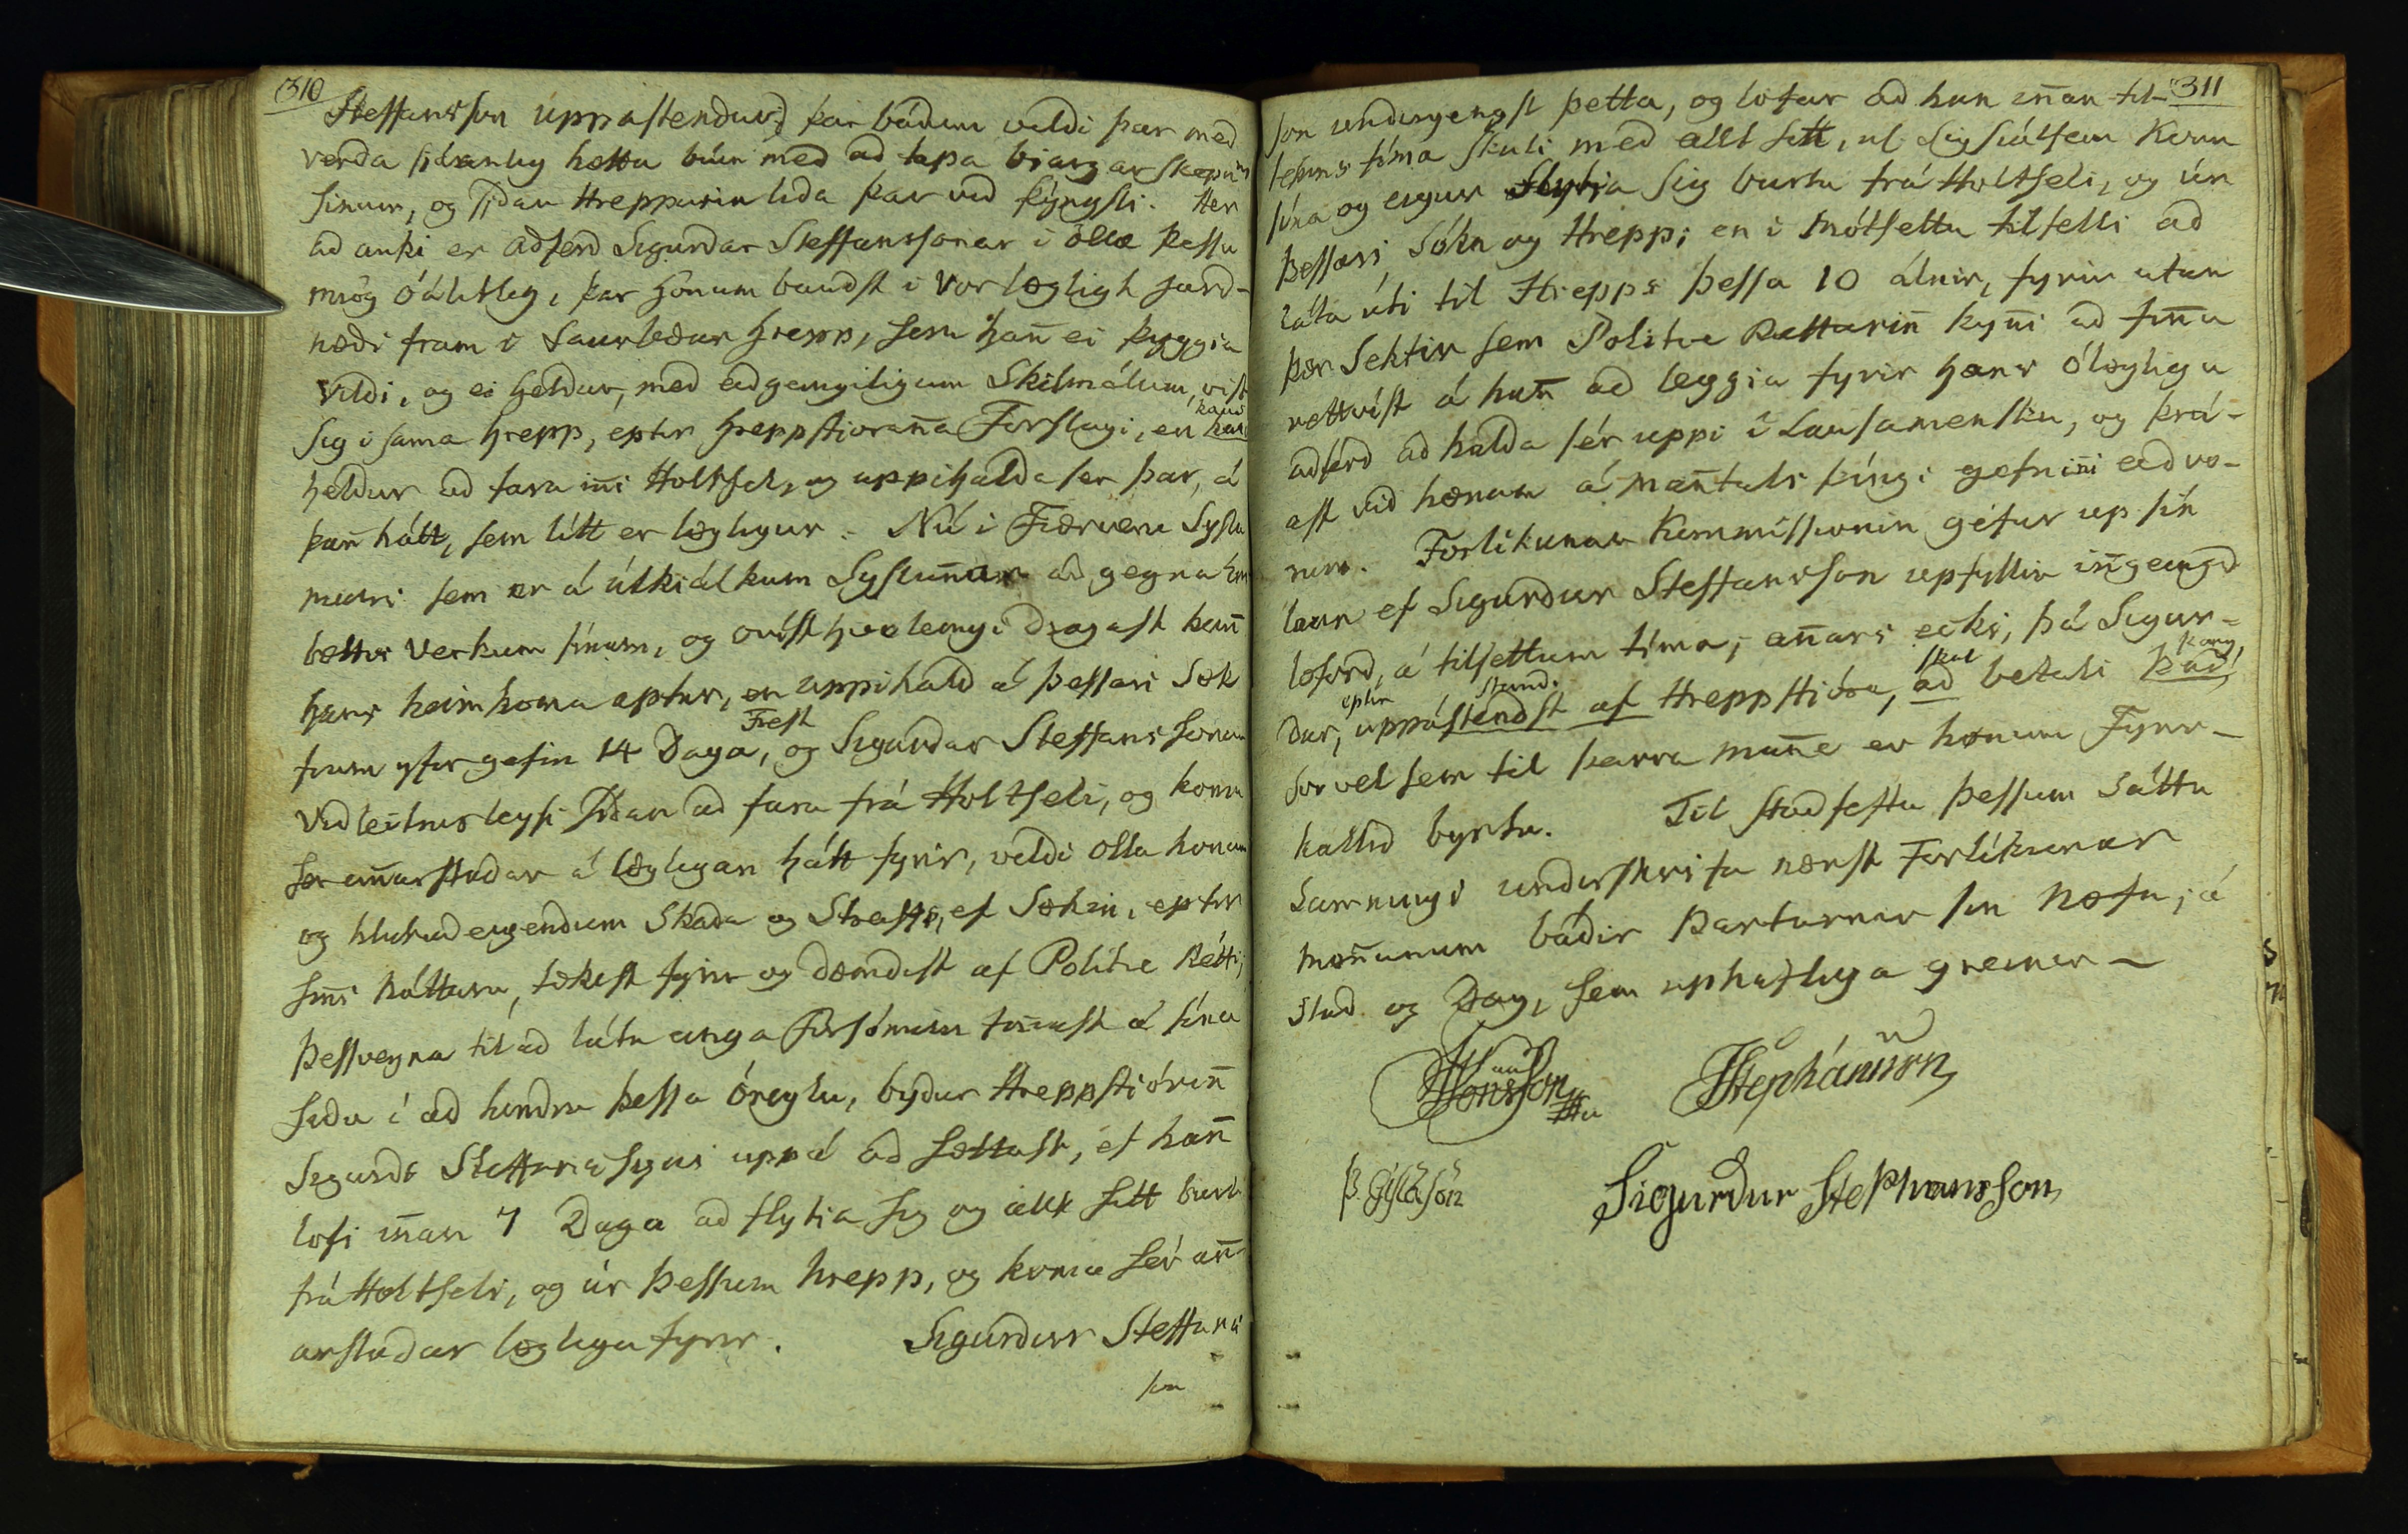 310
Steffansson uppástendur, þar báðum veldi þar með
verða sjálanleg hætta búin með að tapa biargarskepnum
sínum, og síðan Hreppurin líða þar við þýngsli. Her
að auki er aðferð Sigurðar Steffanssonar i öllu þessu
miög óálitleg, þar hönum baudst i vor lögligt jard-
næði fram i Saurbæar hrepp, sem hañ ei þyggia
vildi, og ei heldur, með aðgeingiligum Skilmálum, vist
sig i sama hrepp, eptir hreppstiorana Forslagi, en kaus
heldur að fara iñi Holtsel, og uppihalda ser þar, á
þañ hátt, sem lítt er löglegur. Nú i Fiærveru Syslu
manns sem er á útkiálkum Syslunar að gegna Em
bættis Verkum sínum, og óvíst hvoleingi dragast kañ
hans heimkoma aptur, er uppihald á þessari Sök
Frest
framyfir gefin 14 Daga, og Sigurðar Steffanssonar
Viðleitnisleysi síðan að fara frá Holtseli, og koma
ser annarstaðar á löglegan hátt fyrir, veldi olla honum
og hlutaðeigendum Skaða og Straffs, ef Sökin, eptir
siñi Náttúru, tækist fyrir og dæmdist af Politie Rétti;
Þessvegna til að láta einga Forsómun finnast á sína
síðu i að hindra þessa óreglu, býður Hreppstiórinn
Sigurði Steffanssyni uppá að sættast, ef hañ
lofi iñan 7 Daga að flytia sig og allt sitt burt
frá Holtseli, og úr þessum hrepp, og koma sér añ-
arstaðar löglega fyrir. Sigurður Steffans
son
311
son undirgengst þetta, og lofar að han iñan til-
tekins tíma skuli með allt sitt, sig sjálfan konu
sína og eigur flytia sig burtu frá Holtseli, og úr
þessari Sókn og Hrepp; en i mótsettu tilfelli að
láta úti til Hrepps þessa 10 álnir, fyrir utan
þær Sektir sem Politie Retturin kyñi að fiña
rettvíst á hañ að leggia fyrir hans ólöglegu
aðferð að halda sér uppi i Lausamensku, og þrá-
ast við hönum á mañtals þíngi gefniñi aðvo-
run. Forlíkunar Kommissionin gefur up sín
laun ef Sigurður Steffansson upfyllir ingeingið
loford, á tilsettum tíma; añars ecki, þá Sigur-
eptir stand. skal þaug
dur, uppástendst af Hreppstióra, að betali það,
so vel sem til þarra mañe er honum Fyrir-
kallið byrtu. Til staðfestu þessum Sáttu
Samningi underskrifa næst Forlíkunar
mönnunum báðir Parturnir sin Nöfn; á
stað og Dag, sem uphaflega greiner –
HJonsson JStephánsson
Þ. Gíslason Sigurður Stephansson